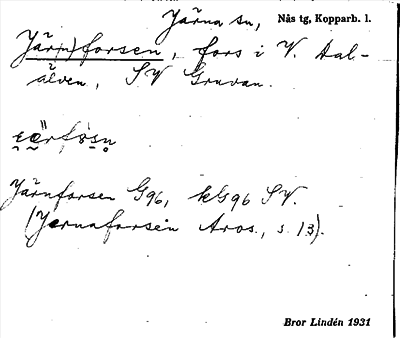 Järna sn, Nås tg, Kopparb. l.
Jär(n)forsen, fors i V. Dal-
älven, SV Gruvan.
Järnforsen G96, kbg96 SV.
(Jernaforsen Aros., s. 13).
Bror Lindén 1931